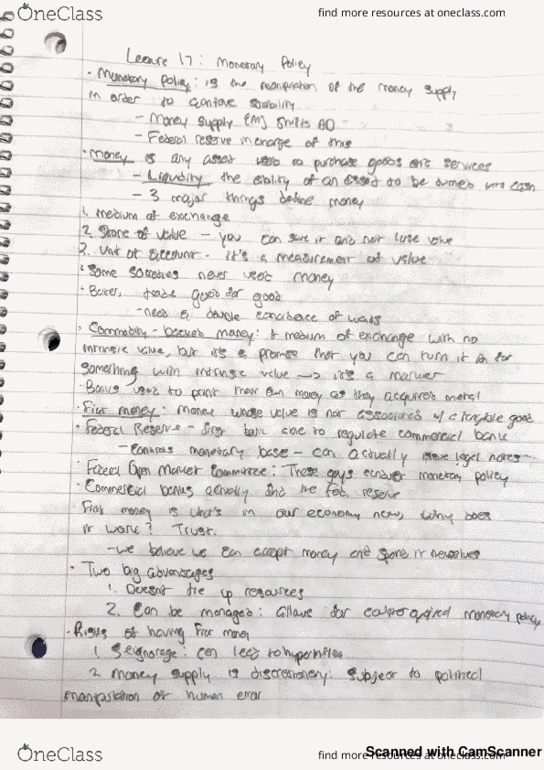 OneClass
find more resources at oneclass.com
Lecture 17: Monetary Policy
· Monetary Policy: is the manipulation of the money supply
in order to achieve stability
- Money supply (M) shifts AD
- Federal reserve in charge of this
· Money is any asset used to purchase goods and services
- Liquidity the ability of an asset to be turned into cash
- 3 major things define money
1. medium of exchange
2. Store of value - you can save it and not lose value
3. Unit of account - it's a measurement of value
· Some societies never used money
· Barter, trade good for good
- need a double coincidence of wants
· Commodity-backed money: A medium of exchange with no
intrinsic value, but it's a promise that you can turn it in for
something with intrinsic value → it's a marker
· Banks used to print their own money as they acquired metal
· Fiat money: money whose value is not associated w/ a tangible good
· Federal Reserve - first bank able to regulate commercial banks
- Controls monetary base - can actually issue legal notes
· Federal Open Market Committee: These guys conduct monetary policy
· Commercial banks actually fund the fed reserve
· Fiat money is what's in our economy now, why does
it work? Trust.
- we believe we can accept money and spend it ourselves
· Two big advantages
1. Doesn't tie up resources
2. Can be managed: Allows for monetary policy
· Risks of having Fiat money
1. Seignorage: can lead to hyperinflation
2 money supply is discretionary: subject to political
manipulation or human error
OneClass
find more resources at oneclass.com
Scanned with CamScanner